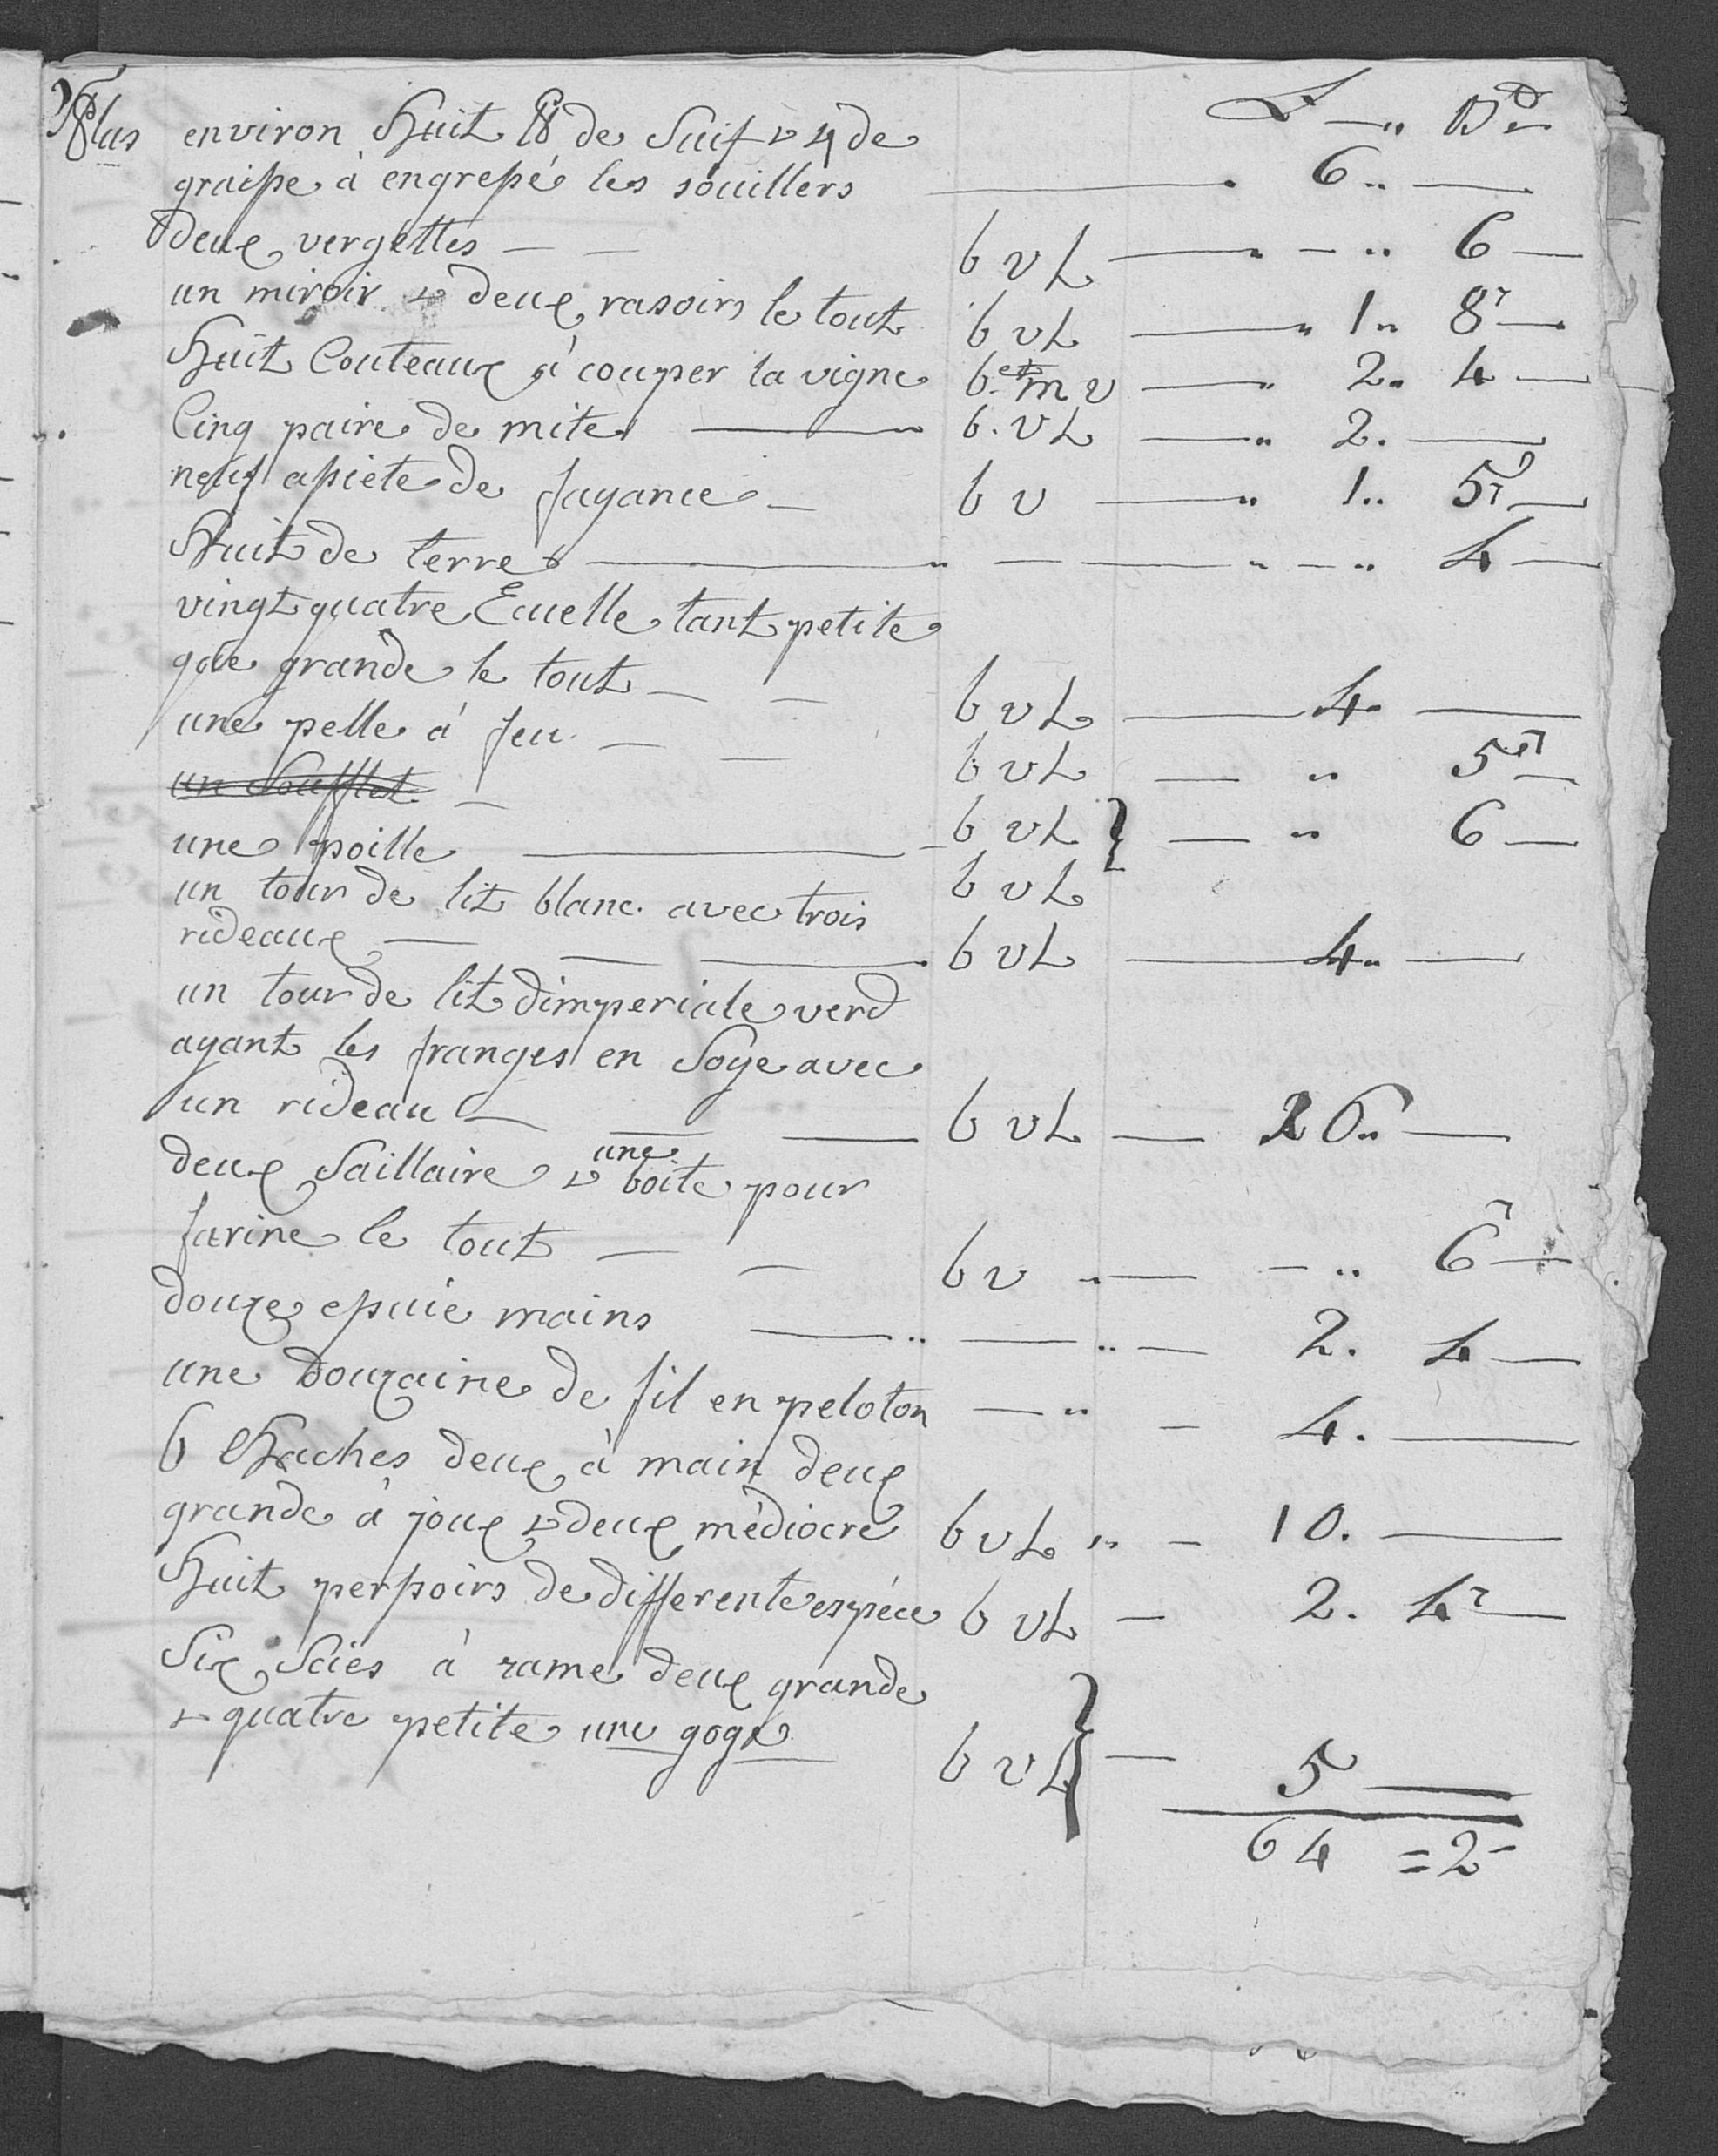 Plus environ Huit ℔ de Suif & 4 de
graisse à engressé les souillers — 6 .. —
deux vergettes — — b v L — .. 6 —
un miroir & deux rasoirs le tout b v L — 1 .. 8 —
Huit Couteaux à couper la vigne b. et m v — 2 .. 4 —
Cinq paire de mite — b. v L — 2. —
neuf assiete de fayance — b v — 1 .. 5 —
Huit de terre — .. — .. 4 —
vingt quatre Ecuelle tant petite
que grande le tout — — b v L — 4 .. —
une pelle à feu — — b v L — .. 5 —
un Soufflet — b v L } — .. 6 —
une poille — b v L
un tour de lit blanc avec trois
rideaux — b v L — 4 .. —
un tour de lit dimperiale verd
ayant les franges en Soye avec
un rideau — b v L — 26 .. —
deux Saillaire & une boite pour
farine le tout — — b v .. — .. 6 —
douze essuie mains — .. — .. — 2. 4 —
une Douzaine de fil en peloton — .. — 4. —
6 Haches deux à main deux
grande à joux & deux médiocre b v L .. — 10. —
Huit perssoirs de differente espéce b v L — 2. 4 —
Six Scies à rame deux grande
& quatre petite une goge b v L } — 5 —
64 = 2